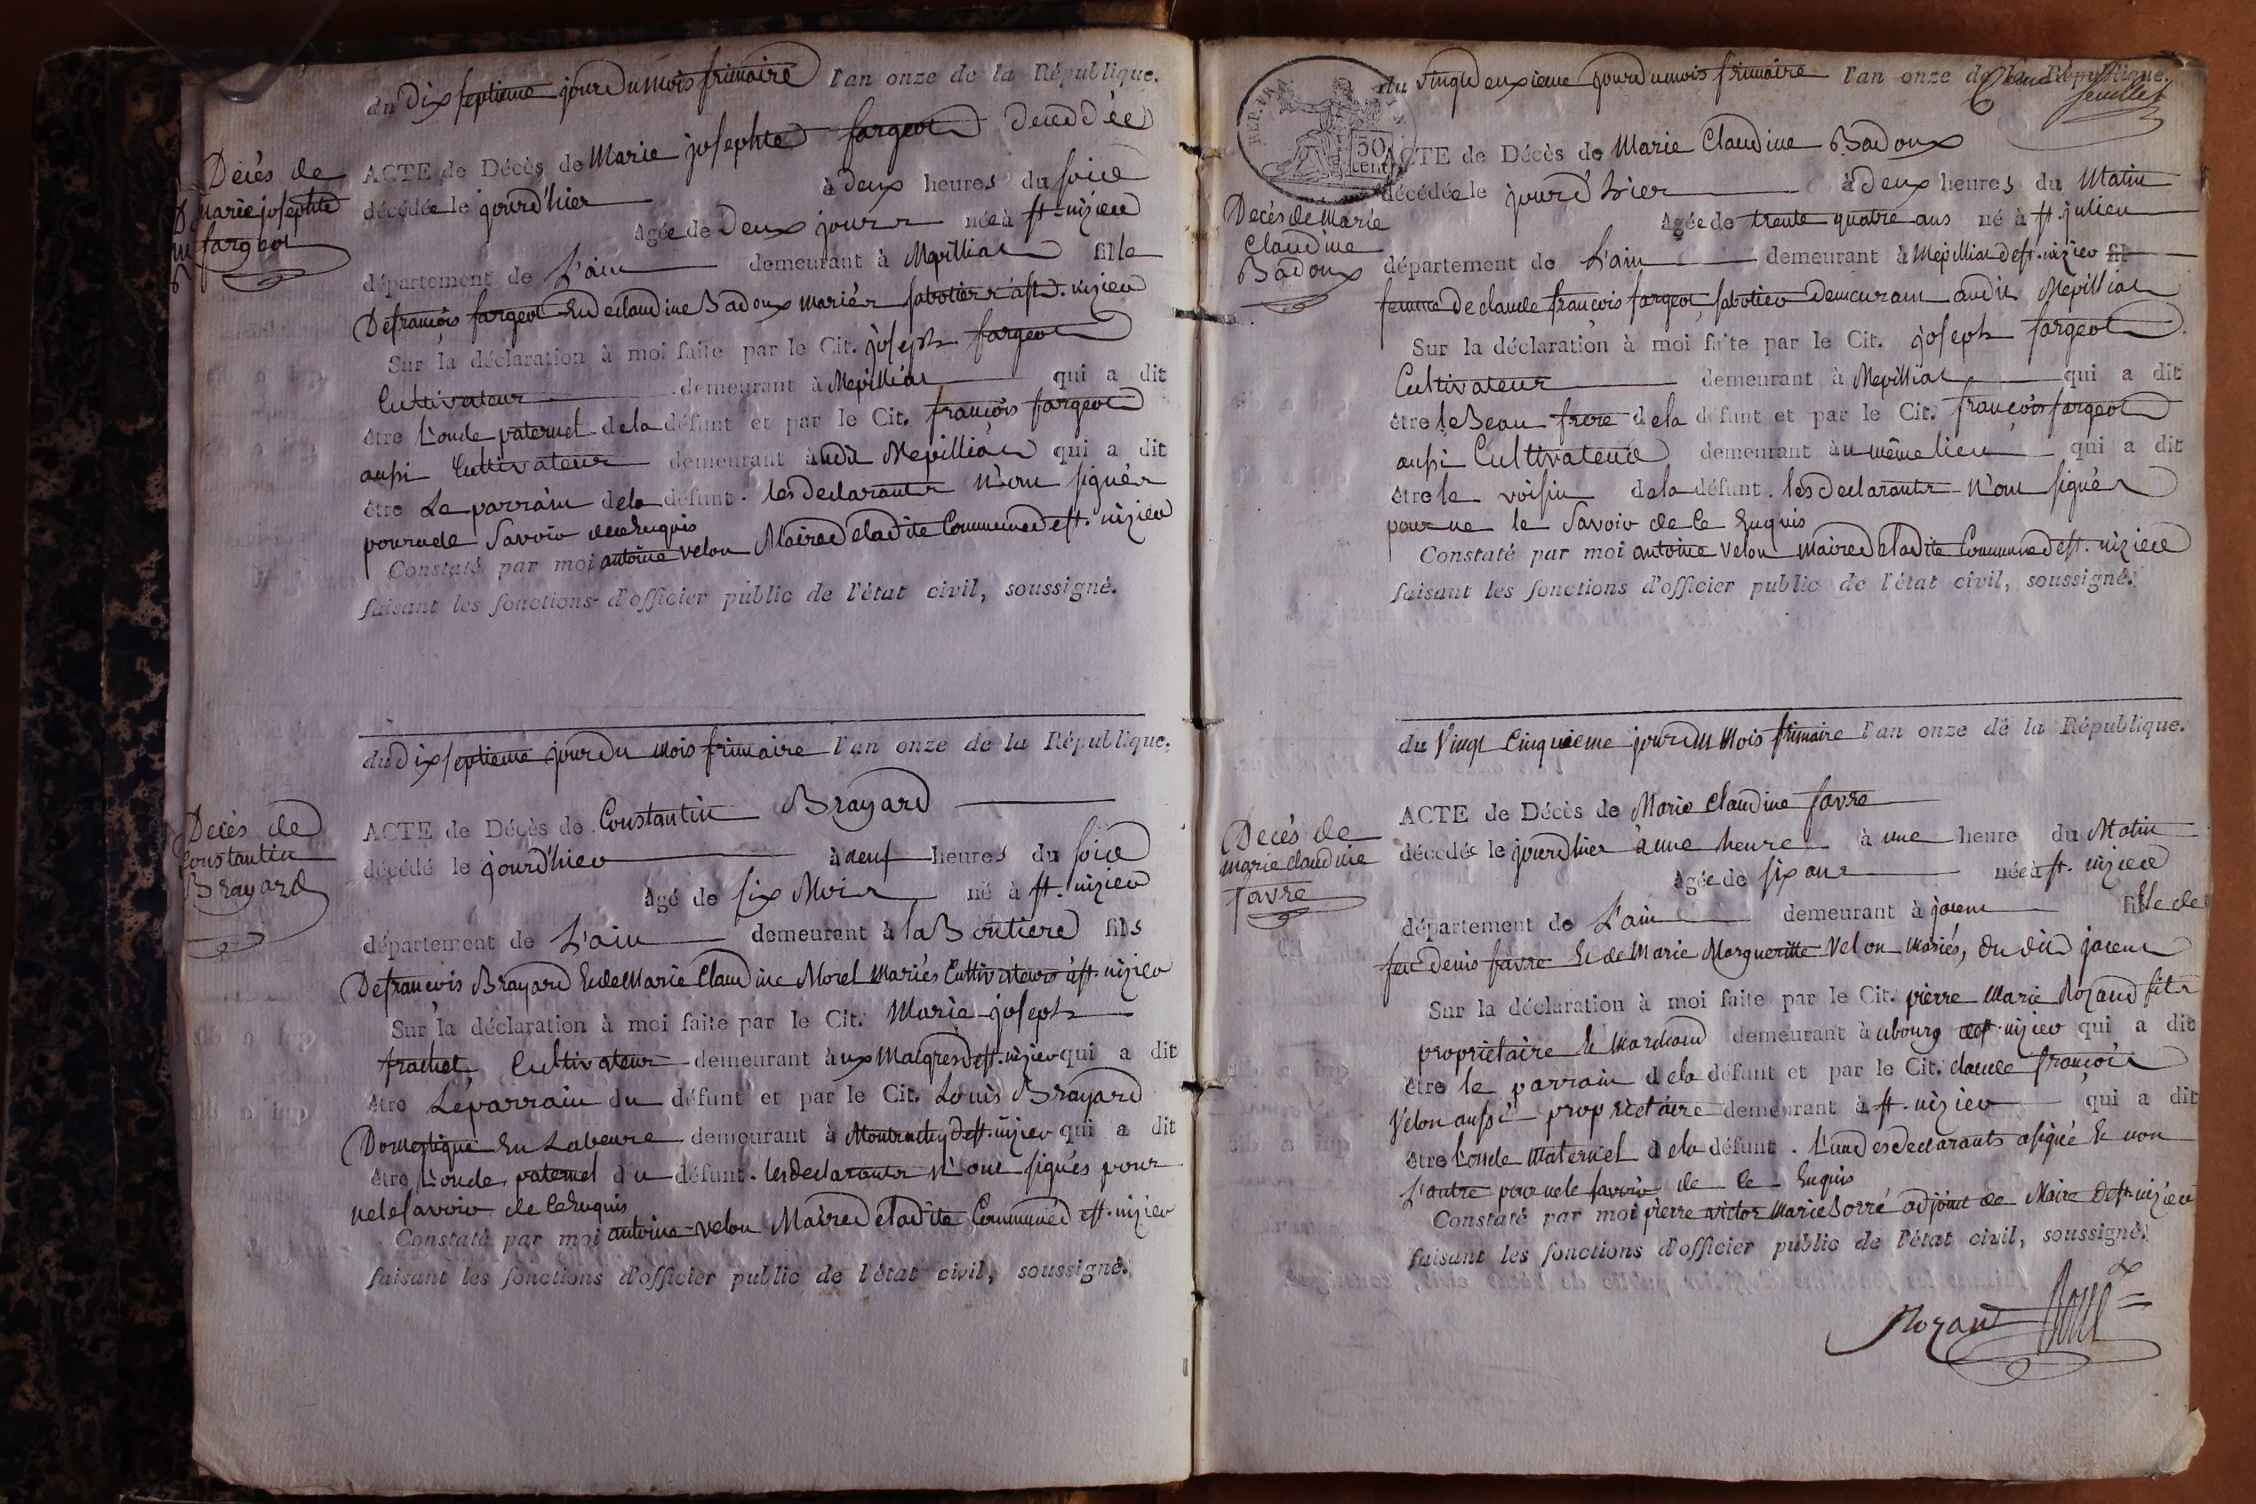 du Dix septieme jour du mois frimaire l'an onze de la République.
Décès de
marie josephte
fargeot
ACTE de Décès de Marie josephte fargeot decedée
décédée le jourd'hier à deux heures du soire
âgée de Deux jours née à st. nizier
département de L'ain demeurant à Mepilliat fille
De françois fargeot Et de claudine Badoux mariés sabotiers à st. nizier
Sur la déclaration à moi faite par le Cit. joseph fargeot
Cultivateur demeurant à Mepilliat qui a dit
être L'oncle paternel de la défunt et par le Cit. françois fargeot
aussi Cultivateur demeurant audit Mepilliat qui a dit
être Le parrain de la défunt. les declarants n'ont signés
pour ne le Savoir de ce Enquis
Constaté par moi antoine velon Maire de ladite Commune de st. nizier
faisant les fonctions d'officier public de l'état civil, soussigné.
du Dix septieme jour du mois frimaire l'an onze de la République.
Décès de
Constantin
Brayard
ACTE de Décès de Constantin Brayard
décédé le jourd'hier à neuf heures du soire
âgé de six Mois né à st. nizier
département de L'ain demeurant à la Boutiere fils
De françois Brayard Et de Marie Claudine Morel Mariés Cultivateurs à st. nizier
Sur la déclaration à moi faite par le Cit. Marie joseph
frachet Cultivateur demeurant aux Maigres de st. nizier qui a dit
être Le parrain du défunt et par le Cit. Louis Brayard
Domestique En Labeure demeurant à de st. nizier qui a dit
être L'oncle paternel du défunt. les declarants n'ont signés pour
ne le Savoir de ce Enquis
Constaté par moi antoine velon Maire de ladite Commune de st. nizier
faisant les fonctions d'officier public de l'état civil, soussigné.
feuillet
REP. FRA.
50
cent.
du vingt deuxieme jour du mois frimaire l'an onze de la République.
Decès de Marie
Claudine
Badoux
ACTE de Décès de Marie Claudine Badoux
décédée le jourd'hier à deux heures du Matin
âgée de trente quatre ans né à st. julien
département de L'ain demeurant à Mepilliat de st. nizier fil
femme de claude françois fargeot sabotier demeurant audit Mepilliat
Sur la déclaration à moi faite par le Cit. joseph fargeot
Cultivateur demeurant à Mepilliat qui a dit
être le Beau frere de la défunt et par le Cit. françois fargeot
aussi Cultivateur demeurant au même lieu qui a dit
être le voisin de la défunt. les declarants n'ont signés
pour ne le Savoir de ce Enquis
Constaté par moi antoine velon maire de ladite Commune de st. nizier
faisant les fonctions d'officier public de l'état civil, soussigné.
du Vingt Cinquieme jour du Mois frimaire l'an onze de la République.
Decès de
marie claudine
favre
ACTE de Décès de Marie Claudine favre
décédée le jourd'hier à une heure à une heure du Matin
âgée de six ans née à st. nizier
département de L'ain demeurant à fille de
feu denis favre Et de Marie Margueritte Velon mariés, du dit
Sur la déclaration à moi faite par le Cit. pierre Marie Rozand fils
proprietaire Et Marchand demeurant au bourg de st. nizier qui a dit
être le parrain de la défunt et par le Cit. claude françois
Velon aussi proprietaire demeurant à st. nizier qui a dit
être l'oncle Maternel de la défunt. L'un des declarants a signé Et non
L'autre pour ne le savoir de ce Enquis
Constaté par moi pierre victor Marie Borré adjoint de Maire De st. nizier
faisant les fonctions d'officier public de l'état civil, soussigné.
Rozand